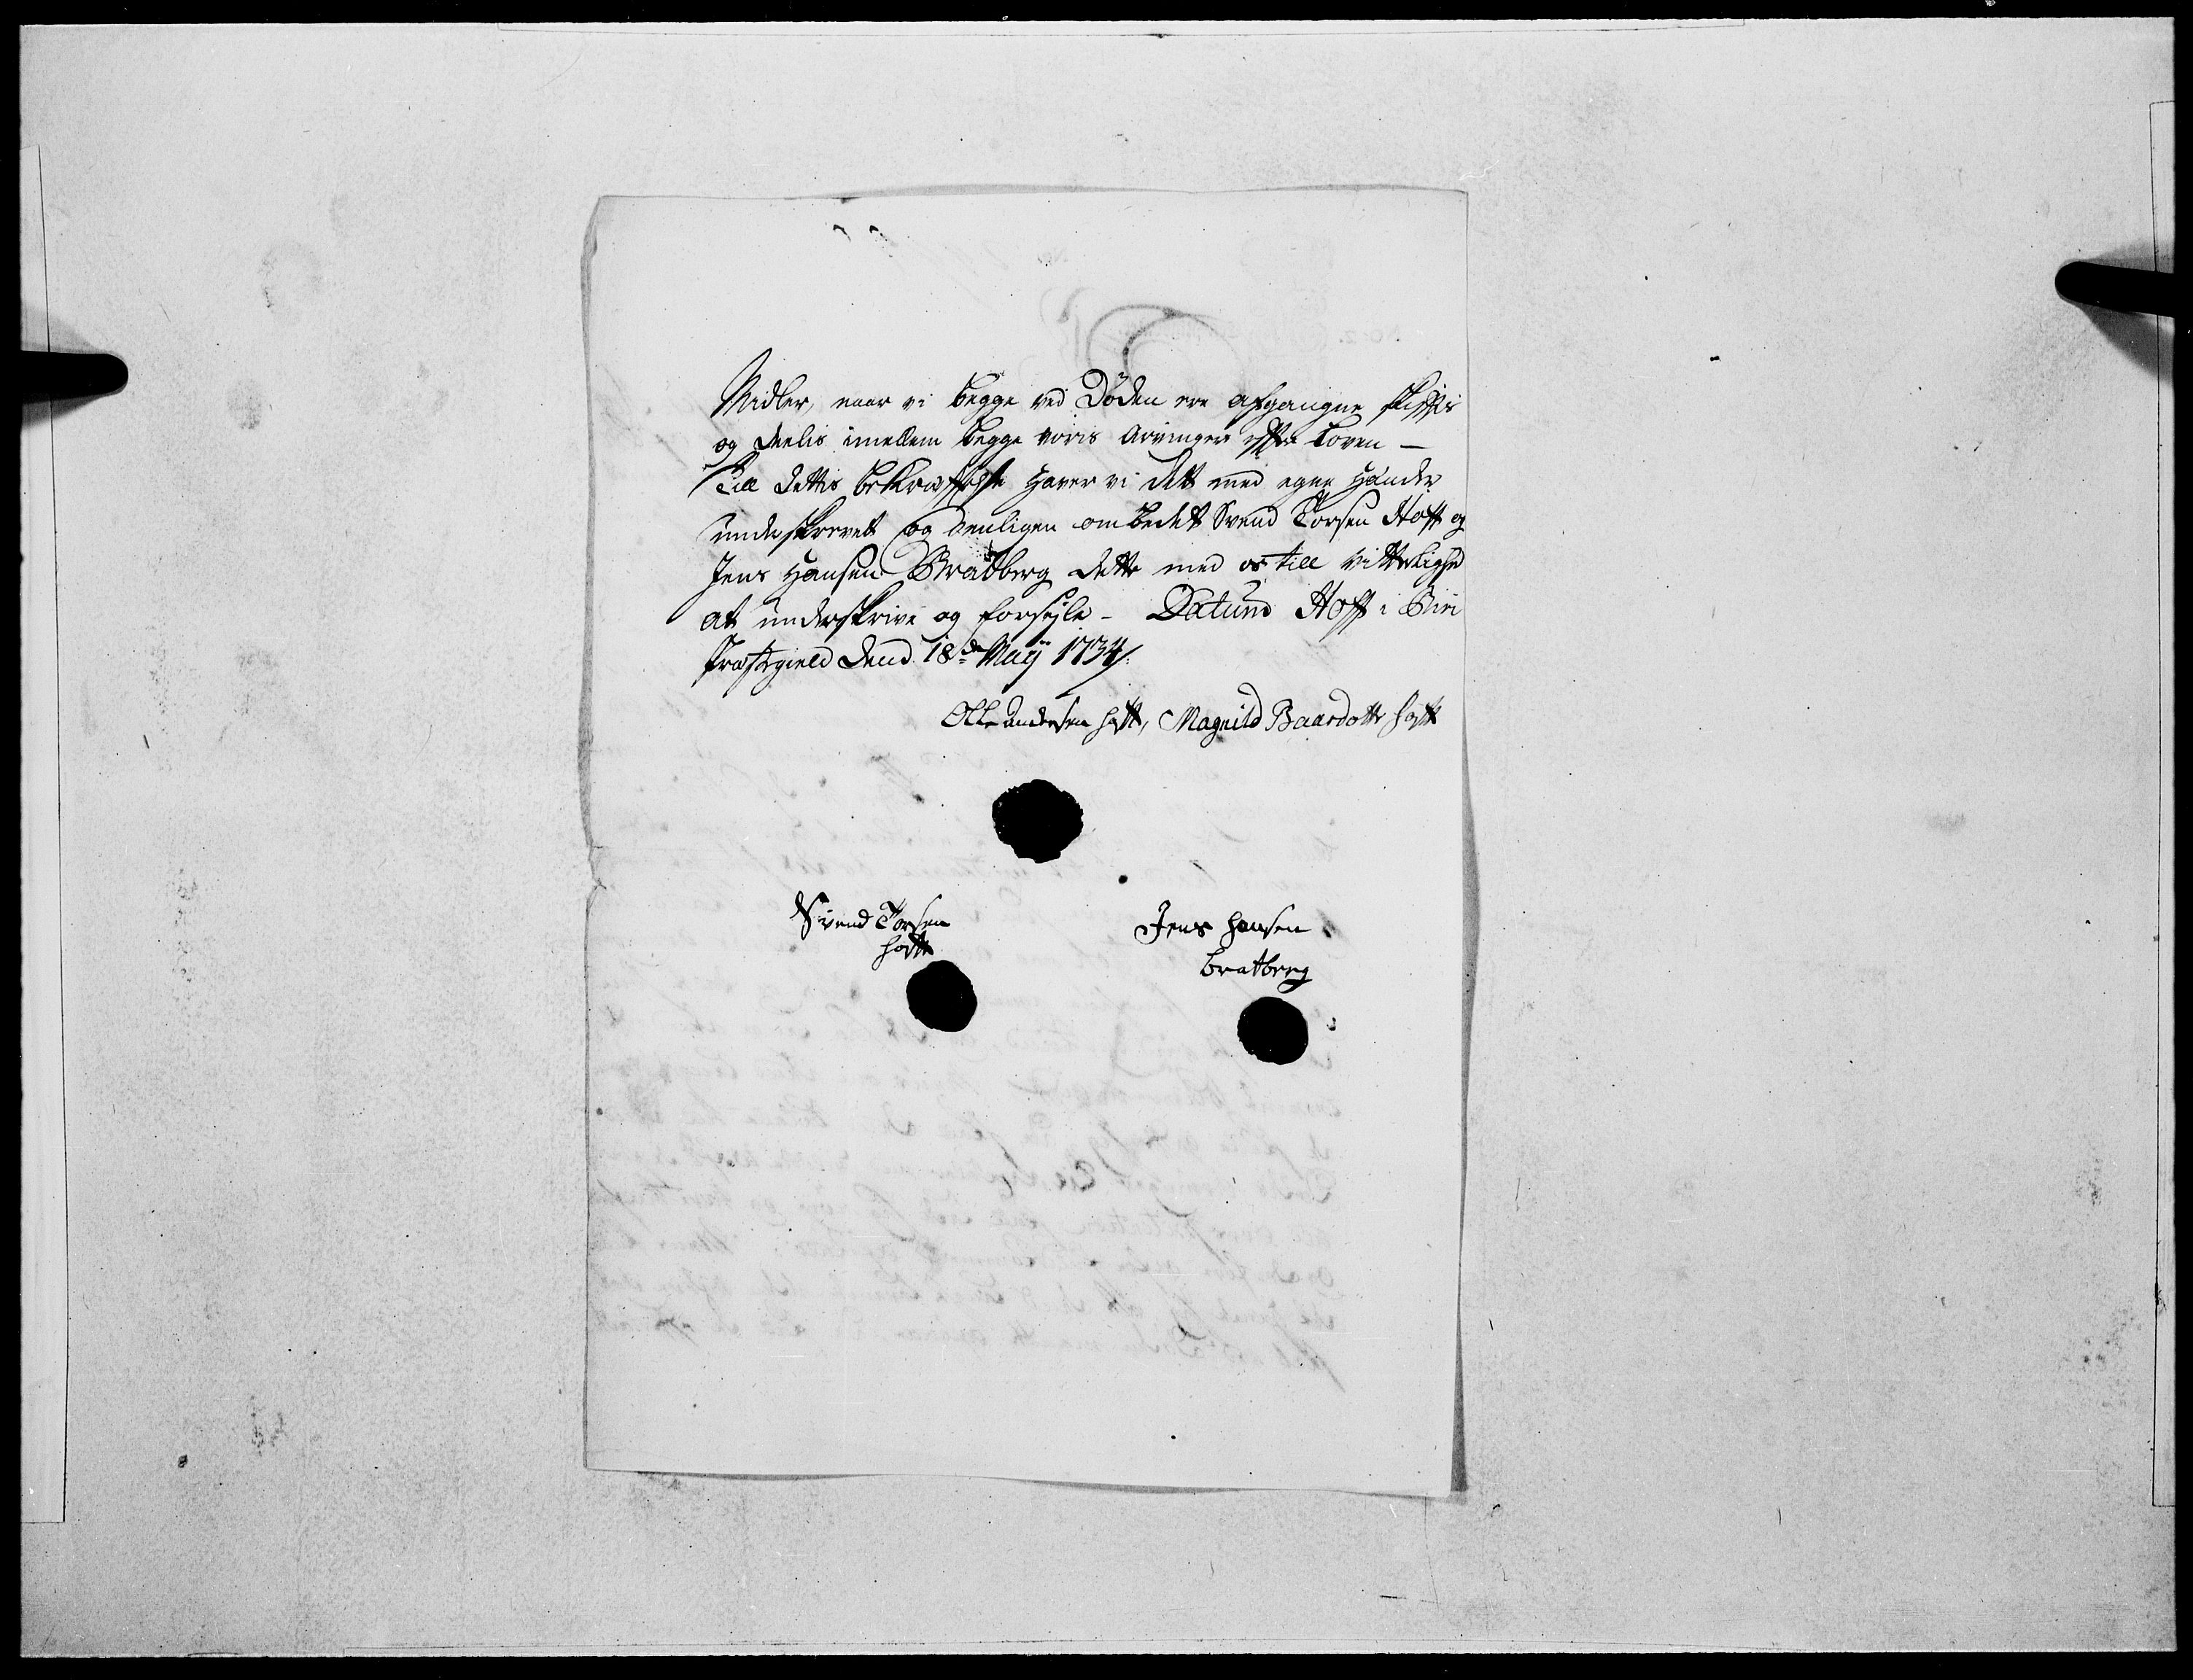 Midler, naar vi begge ved Døden ere afgangne skiftis
og deelis imellem begge voris Arvinger efter Loven –
Till dettis bekræftelse haver vi dett med egne hænder
underskrevet og venligen ombedet Svend Torsen Hoff og
Jens Hansen Bratberg dette med os till vitterlighed
at underskrive og forsejle – Datum Hoff i Biri
Præstegield dend 18de Maij 1734/:
Olle Andersen hoff, Magnild Baardotter hoff
Svend Torsen
hoff
Jens Hansen
bratberg